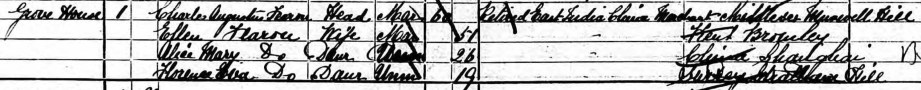 Grove House 1 Charles Augustus Fearon Head Mar 60 Retired East India China Merchant Middlesex Muswell Hill
Ellen Fearon Wife Mar 51 " Kent Bromley
Alice Mary Do Daur Unm 26 " China Shanghai
Florence Eliza Do Daur Unm 19 Surrey Streatham Hill